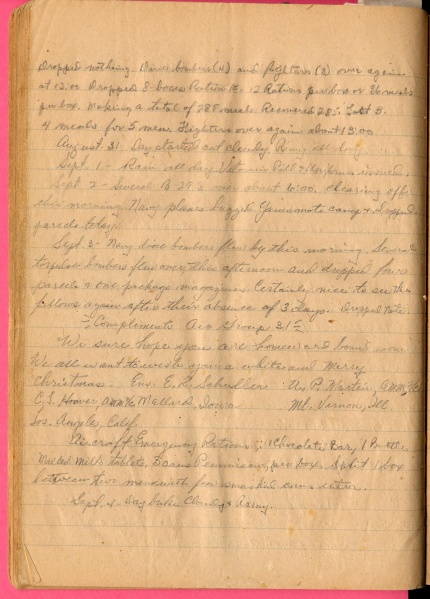 Dropped nothing. Dive bombers (4) and fighters (2) over again
at 12:00 Dropped 8 boxes Rations 12 Rations per box or 36 meals
per box. Making a total of 288 meals. Received 28
4 meals for 5 men. Fighters over again about 13:00
August 31 Day started out cloudy. Rainy all day
Sept. 1 - Rain all day. Vitamin Pills & issued.
Sept. 2 - Several B-29's over about 10:00. Clearing off
this morning. Navy planes buzzed Yamamoto camp & dropped
parcels today.
Sept. 3 - Navy dive bombers flew by this morning. Several
torpedo bombers flew over this afternoon and dropped four
parcels & one package magazines. Certainly nice to see the
fellows again after their absence of 3 days. Dropped Note.
Compliments Air Group 31
We sure hope you are homeward bound soon
We all want to wish you a white and Merry
Christmas. Ens. E. L. U. P. AMM
C. L. Hoover, AMM Mallard, Iowa Mt. Vernon, Ill.
Los. Angeles, Calif.
Aircraft Emergency Rations: 1 Chocolate Bar, 1
Malted Milk tablets, per box. Split 1 box
between five men with few smashed cans
Sept. 4 - Day Cloudy & Rainy.